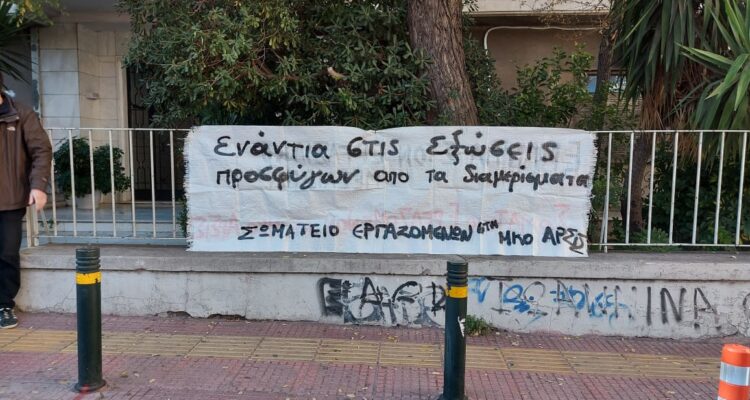 Ενάντια στις Εξώσεις
προσφύγων απο τα διαμερίσματα
ΣΩΜΑΤΕΙΟ ΕΡΓΑΖΟΜΕΝΩΝ στη ΜΚΟ ΑΡΣΙΣ